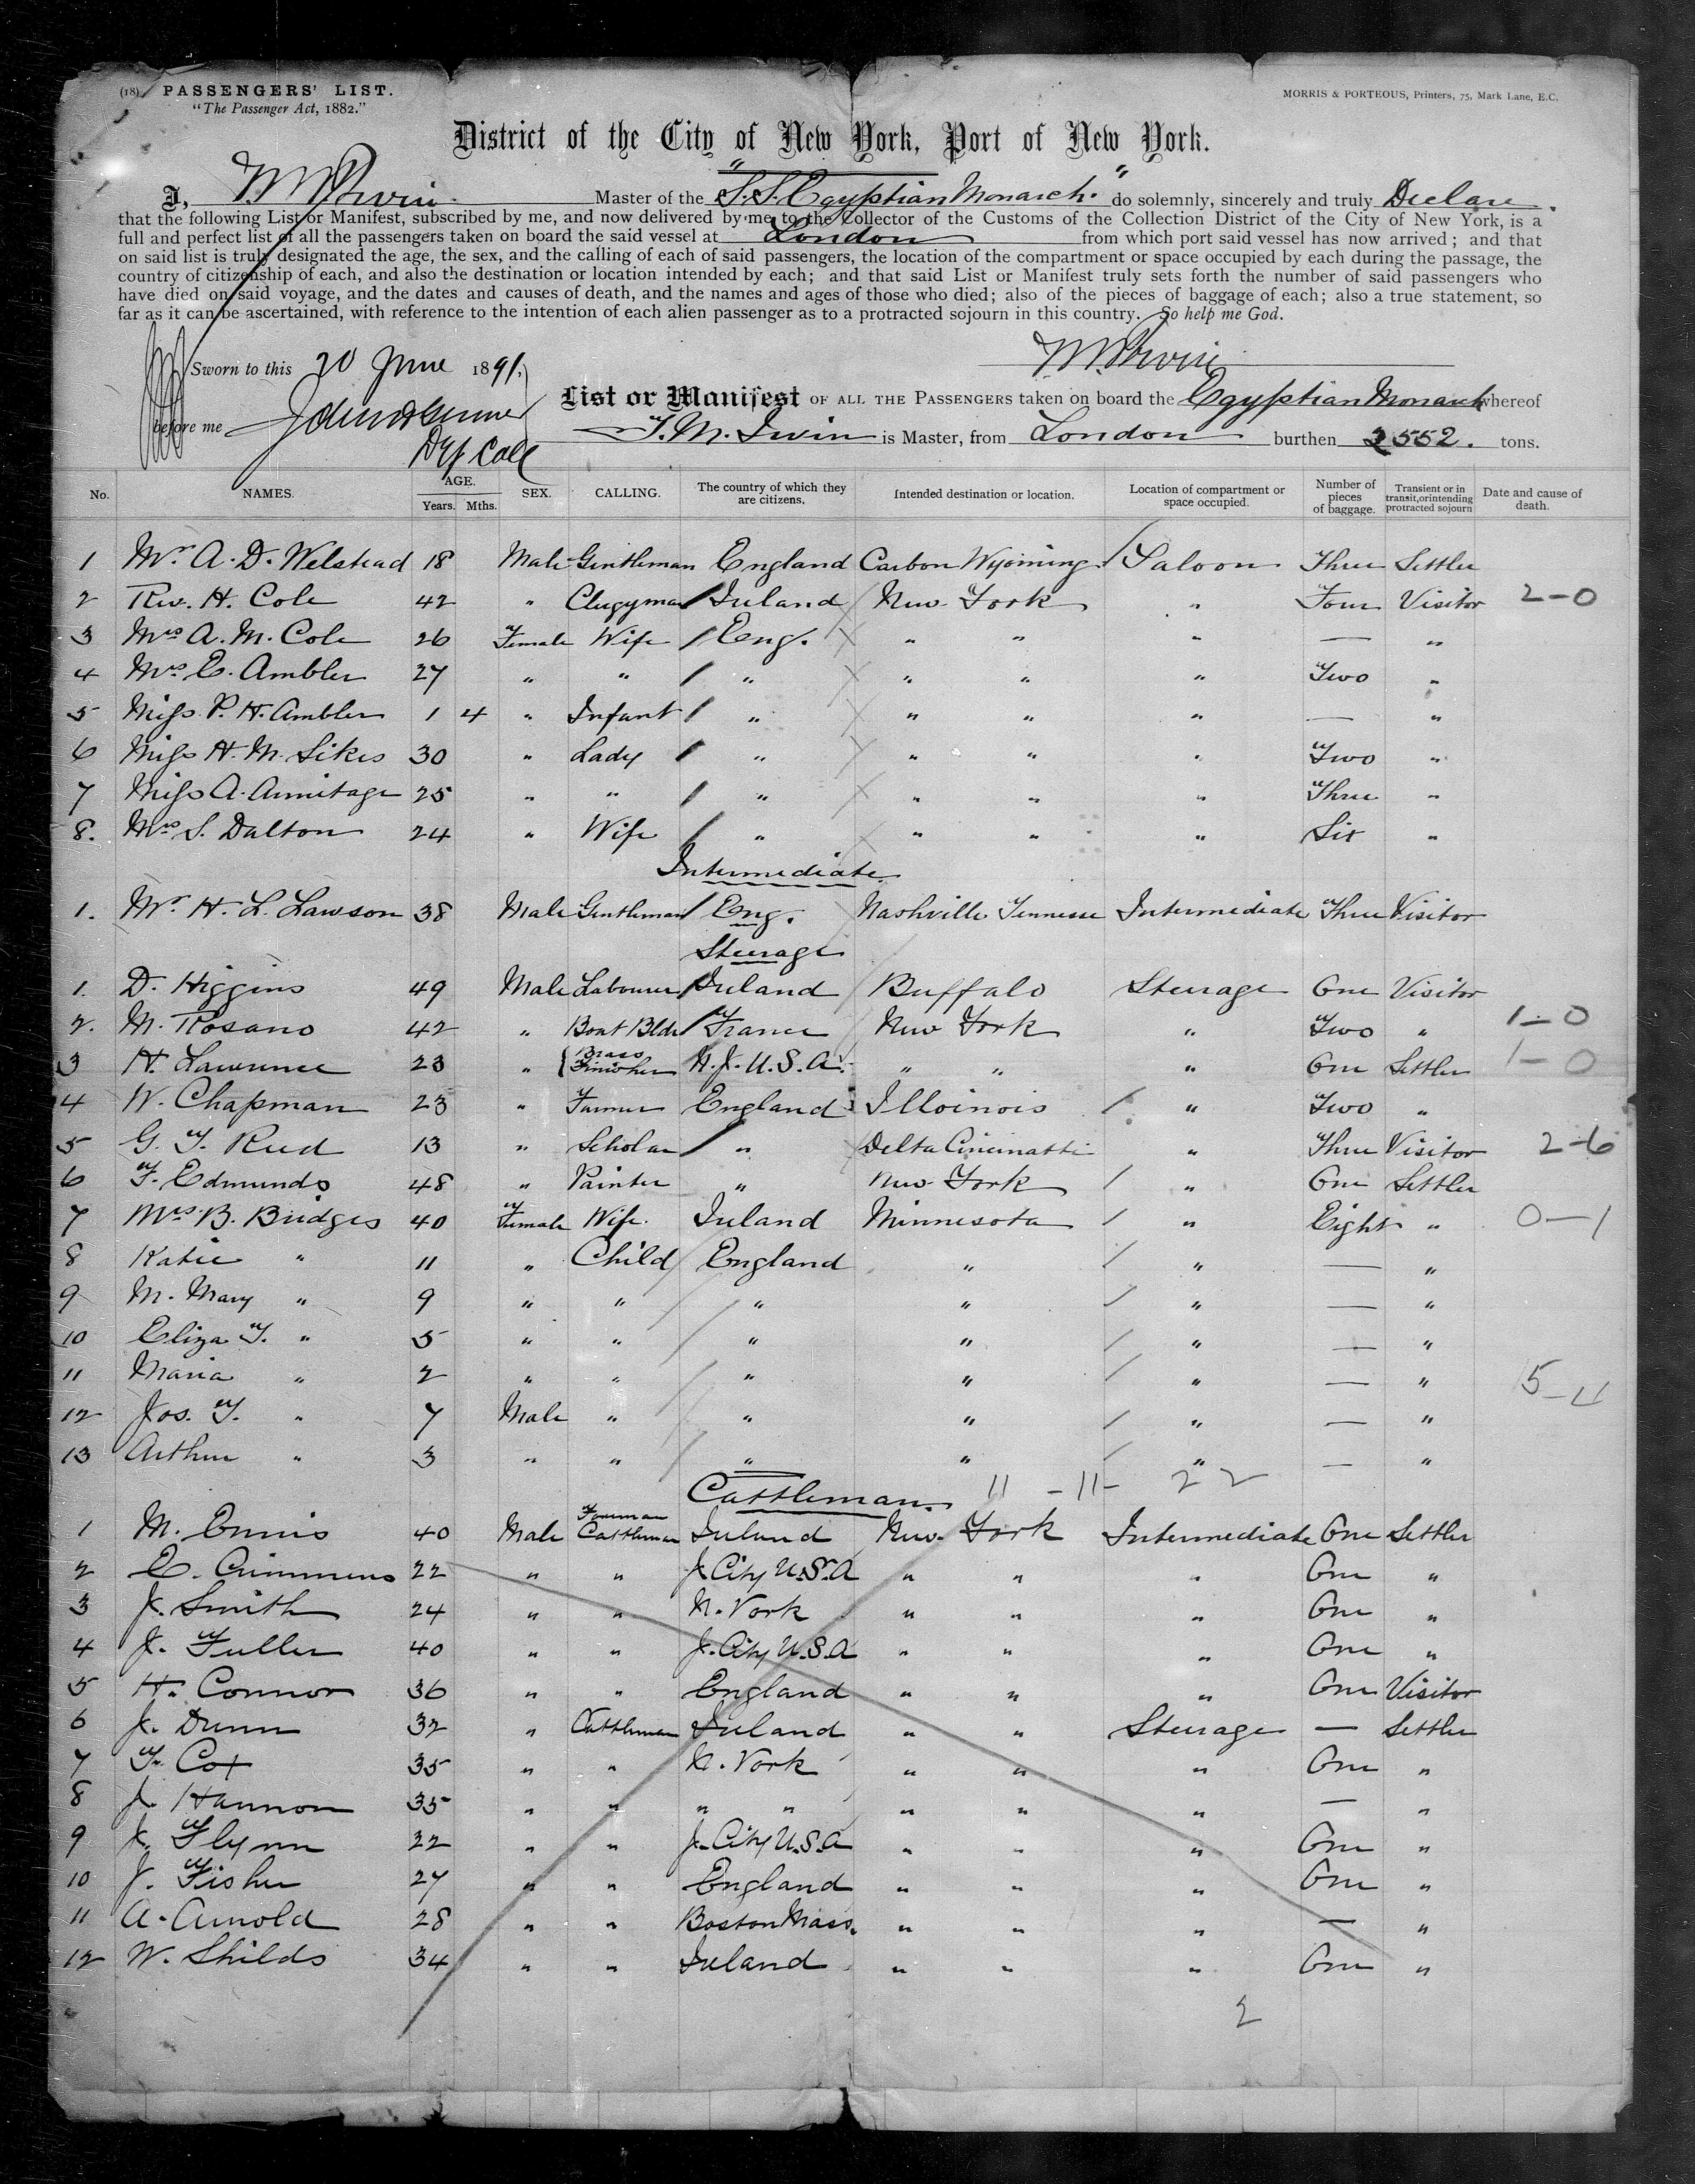 (18) PASSENGERS' LIST.
"The Passenger Act, 1882."
MORRIS & PORTEOUS, Printers, 75, Mark Lane, E.C.
District of the City of New York, Port of New York.
I, T. M. Irwin Master of the "S.S. Egyptian Monarch." do solemnly, sincerely and truly Declare.
that the following List or Manifest, subscribed by me, and now delivered by me to the Collector of the Customs of the Collection District of the City of New York, is a
full and perfect list of all the passengers taken on board the said vessel at London from which port said vessel has now arrived; and that
on said list is truly designated the age, the sex, and the calling of each of said passengers, the location of the compartment or space occupied by each during the passage, the
country of citizenship of each, and also the destination or location intended by each; and that said List or Manifest truly sets forth the number of said passengers who
have died on said voyage, and the dates and causes of death, and the names and ages of those who died; also of the pieces of baggage of each; also a true statement, so
far as it can be ascertained, with reference to the intention of each alien passenger as to a protracted sojourn in this country. So help me God.
T. M. Irwin
Sworn to this 20 June 1891,
List or Manifest OF ALL THE PASSENGERS taken on board the Egyptian Monarch whereof
before me
T. M. Irwin is Master, from London burthen 2552. tons.
Dep Coll
No. NAMES. AGE. Years. Mths. SEX. CALLING. The country of which they are citizens. Intended destination or location. Location of compartment or space occupied. Number of pieces of baggage. Transient or in transit, or intending protracted sojourn Date and cause of death.
1 Mr. A. D. Welstead 18 Male Gentleman England Carbon Wyoming Saloon Three Settler
2 Rev. H. Cole 42 " Clergyman Ireland New York " Four Visitor 2-0
3 Mrs A. M. Cole 26 Female Wife Eng. " " " — "
4 Mrs E. Ambler 27 " " " " " " Two "
5 Miss P. H. Ambler 1 4 " Infant " " " " — "
6 Miss H. M. Sikes 30 " Lady " " " " Two "
7 Miss A. Armitage 25 " " " " " " Three "
8. Mrs S. Dalton 24 " Wife " " " " Six "
Intermediate
1. Mr. H. L. Lawson 38 Male Gentleman Eng. Nashville Tennesse Intermediate Three Visitor
Steerage
1. D. Higgins 49 Male Labourer Ireland Buffalo Steerage One Visitor
2. M. Rosano 42 " Boat Bldr France New York " Two " 1-0
3 H. Lawrence 23 " Brass Finisher N.J. U.S.A. " " " One Settler 1-0
4 W. Chapman 23 " Farmer England Illoinois " Two "
5 G. T. Reed 13 " Scholar " Delta Cincinatti " Three Visitor 2-6
6 F. Edmunds 48 " Painter " New York " One Settler
7 Mrs B. Bridges 40 Female Wife. Ireland Minnesota " Eight " 0-1
8 Katie " 11 " Child England " " — "
9 M. Mary " 9 " " " " " — "
10 Eliza T. " 5 " " " " " — "
11 Maria " 2 " " " " " — " 5-4
12 Jos. T. " 7 Male " " " " — "
13 Arthur " 3 " " " " " — "
Cattleman. 11 - 11- 22
1 M. Ennis 40 Male Foreman Cattleman Ireland New York Intermediate One Settler
2 E. Crimmens 22 " " J. City U.S.A " " " One "
3 J. Smith 24 " " N. York " " " One "
4 J. Fuller 40 " " J. City U.S.A " " " One "
5 H. Connor 36 " " England " " " One Visitor
6 J. Dunn 32 " Cattleman Ireland " " Steerage — Settler
7 T. Cox 35 " " N. York " " " One "
8 J. Hannon 35 " " " " " " " — "
9 J. Flynn 22 " " J. City U.S.A " " " One "
10 J. Fisher 27 " " England " " " One "
11 A. Arnold 28 " " Boston Mass. " " " — "
12 W. Shilds 34 " " Ireland " " " One "
2